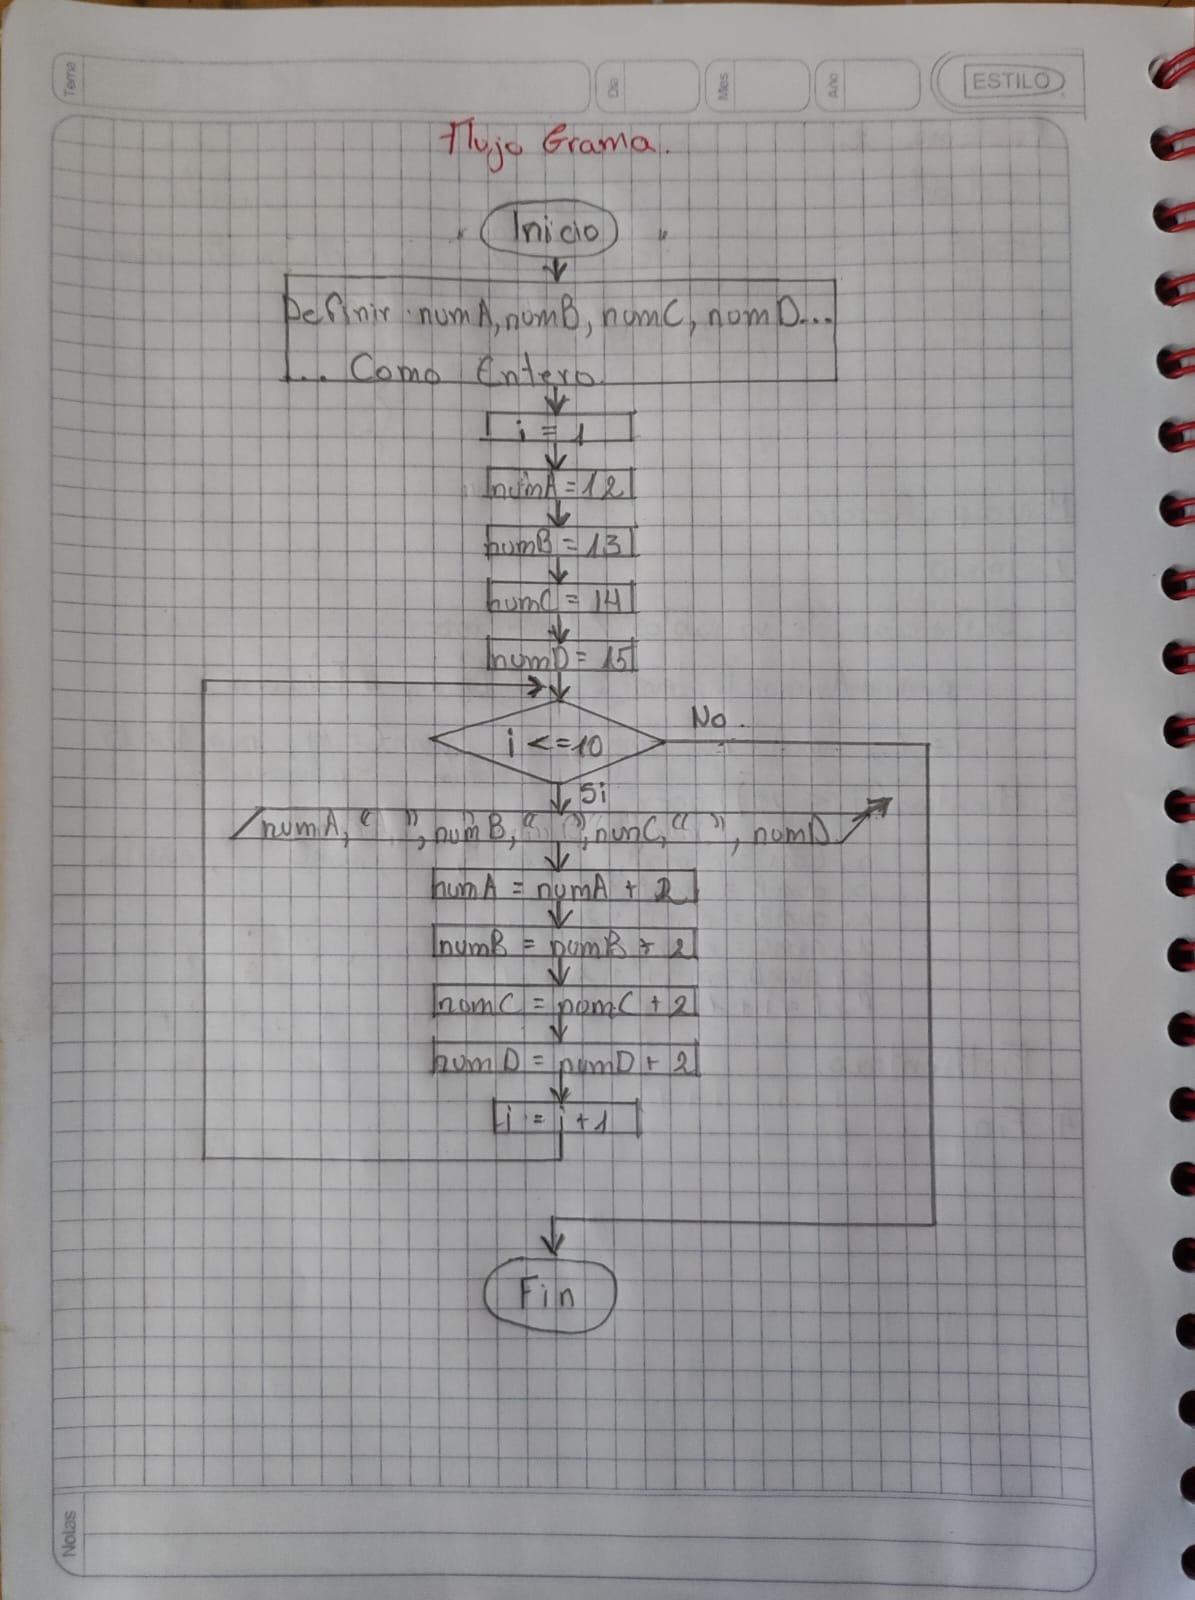 Tema
Dia
Mes
Año
ESTILO
Flujo Grama.
Inicio
Definir numA, numB, numC, numD...
... Como Entero
i = 1
numA = 12
numB = 13
numC = 14
numD = 15
i <= 10
No.
Si
numA, “ ”, numB, “ ”, numC, “ ”, numD
numA = numA + 2
numB = numB + 2
numC = numC + 2
numD = numD + 2
i = i + 1
Fin
Notas